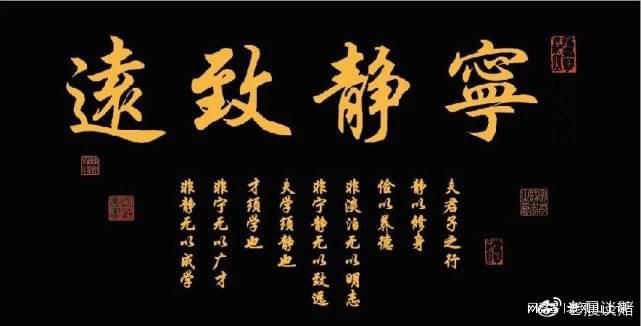 寧静致遠
夫君子之行
静以修身
俭以养德
非淡泊无以明志
非宁静无以致远
夫学须静也
才须学也
非宁无以广才
非静无以成学